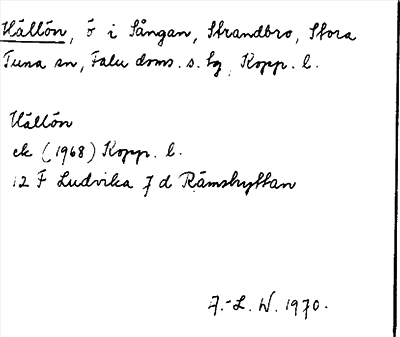 Hällön, ö i Sångan, Strandbro, Stora
Tuna sn, Falu doms. s. tg, Kopp. l.
Hällön
ek (1968) Kopp. l.
12 F Ludvika 7 d Rämshyttan
A.-L. W. 1970.